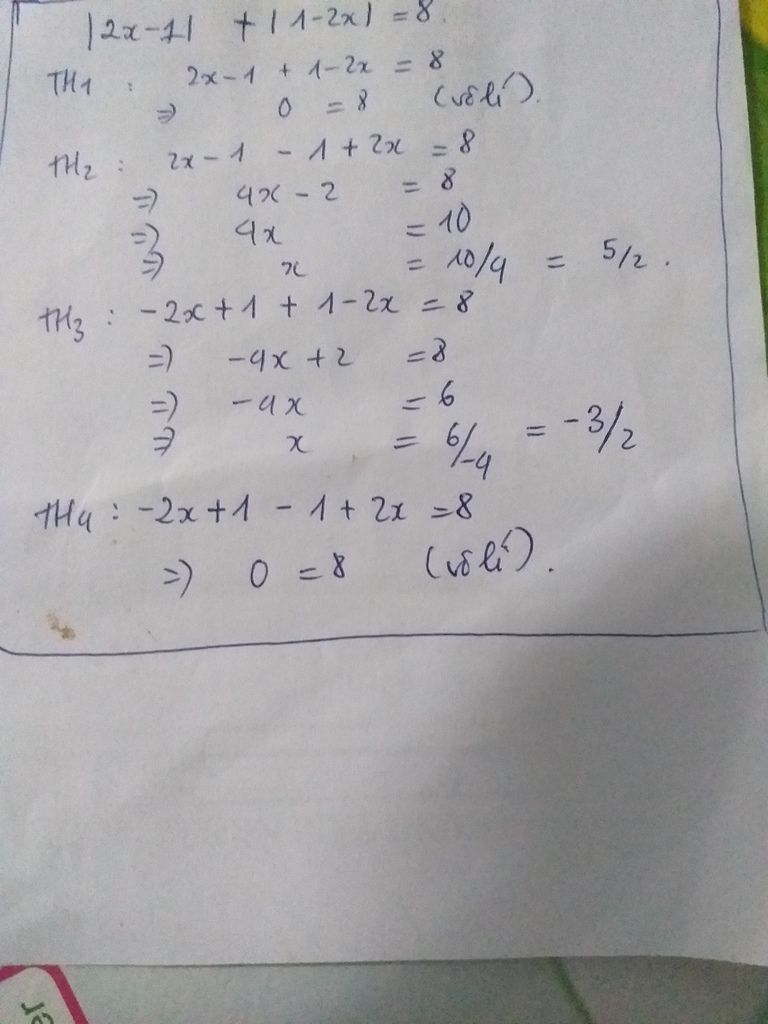 |2x-1| + |1-2x| = 8.
TH1 : 2x-1 + 1-2x = 8
=> 0 = 8 (vô lí).
TH2 : 2x-1 - 1+2x = 8
=> 4x-2 = 8
=> 4x = 10
=> x = 10/4 = 5/2.
TH3 : -2x+1 + 1-2x = 8
=> -4x+2 = 8
=> -4x = 6
=> x = 6/-4 = -3/2
TH4 : -2x+1 - 1+2x = 8
=> 0 = 8 (vô lí).